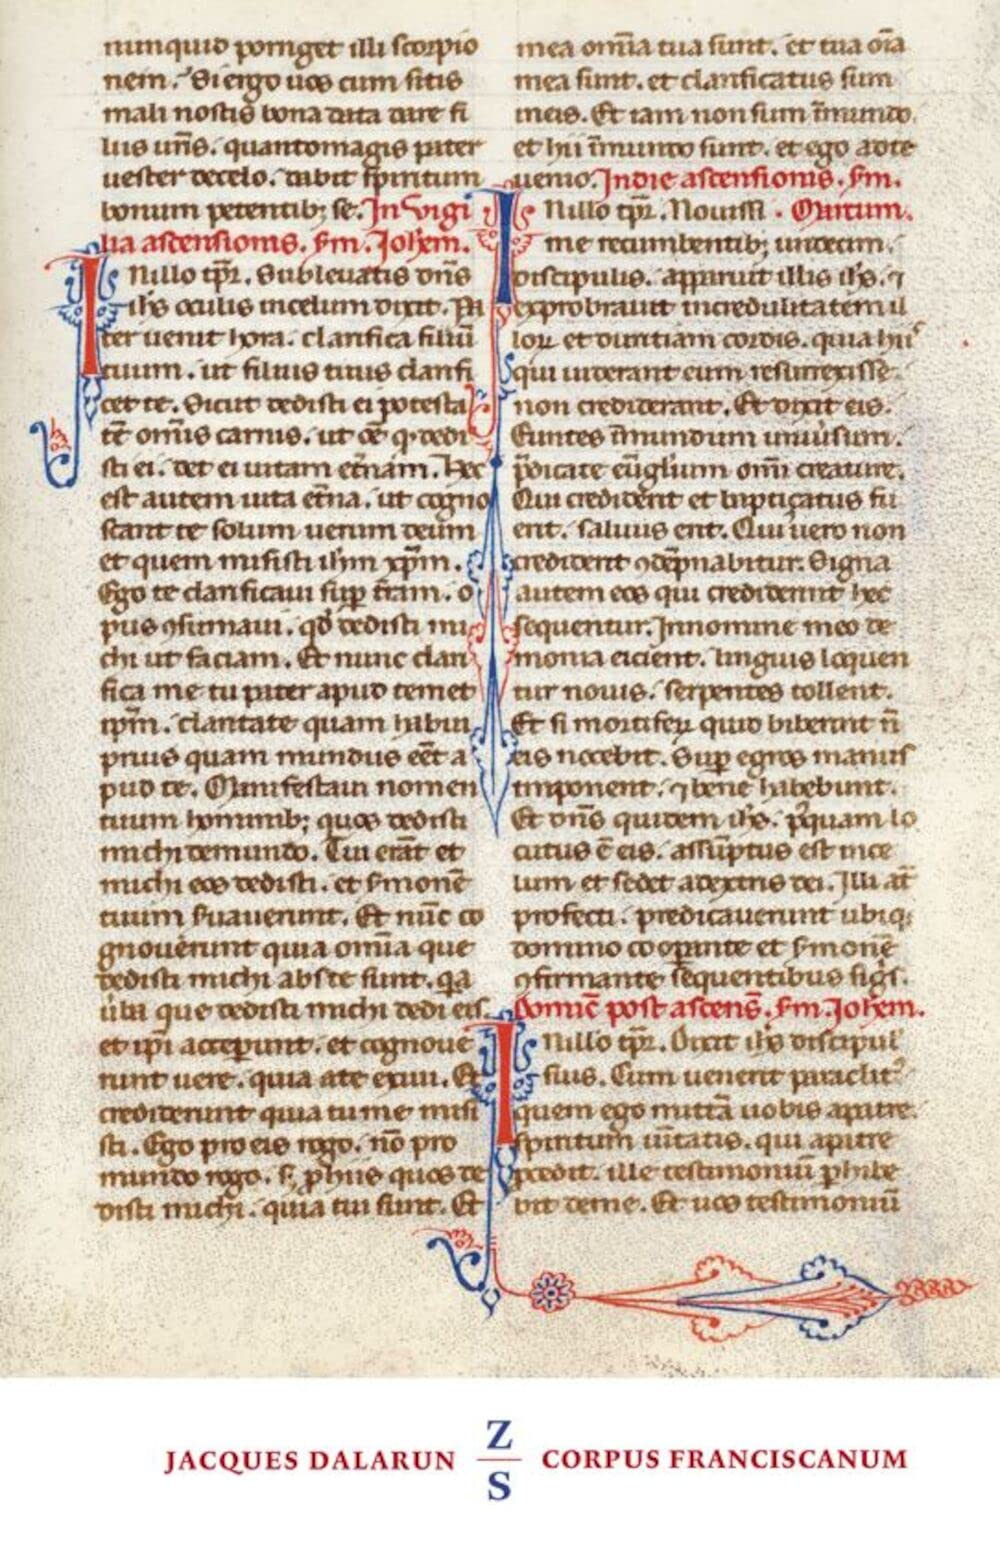 nunquid porriget illi scorpio
nem. Si ergo uos cum sitis
mali nostis bona data dare fi
liis ur̃is. quantomagis pater
uester decelo. dabit spiritum
bonum petentib; se. In vigi
lia ascensionis. sm̃. Joh̃em.
INillo tp̃r. Subleuatis dñs
ih̃s oculis incelum dixit. Pa
ter uenit hora. clarifica filiũ
tuum. ut filius tuus clarifi
cet te. Sicut dedisti ei potesta
tẽ om̃is carnis. ut õe q̃ dedi
sti ei. det ei uitam et̃nam. Hec
est autem uita et̃na. ut cogno
scant te solum uerum deum
et quem misisti ih̃m xp̃m.
Ego te clarificaui sup̱ t̃ram. o
pus ꝯsumaui. qd̃ dedisti mi
chi ut faciam. Et nunc clari
fica me tu pater apud temet
ip̃m. claritate quam habui
prius quam mundus eẽt a
pud te. Manifestaui nomen
tuum hominib; quos dedisti
michi demundo. Tui erãt et
michi eos dedisti. et s̃monẽ
tuum s̃uauerunt. Et nũc co
gnouerunt quia omĩa que
dedisti michi abste sunt. q̃a
ũba que dedisti michi dedi eis.
et ip̃i acceperunt. et cognoue
runt uere. quia ate exiui. Et
crediderunt quia tu me misi
sti. Ego pro eis rogo. nõ pro
mundo rogo. s; p̱ hiis quos de
disti michi. quia tui sunt. Et
mea omĩa tua sunt. et tua oĩa
mea sunt. et clarificatus sum
ineis. Et iam non sum ĩmundo.
et hii ĩmundo sunt. et ego adte
uenio. Indie ascensionis. sm̃.
INillo tp̃r. Nouissi Marcum.
me recumbentib; undecim
discipulis. apparuit illis ih̃s. ⁊
exprobrauit incredulitatem il
loꝝ et duritiam cordis. quia hiis
qui uiderant eum resurrexisse
non crediderant. Et dixit eis.
Euntes ĩmundum uniũsum.
p̃dicate eũglium om̃i creature.
Qui crediderit et baptiçatus fu
erit. saluus erit. Qui uero non
crediderit ꝯdẽpnabitur. Signa
autem eos qui crediderint hec
sequentur. Innomine meo de
monia eicient. linguis loquen
tur nouis. serpentes tollent.
Et si mortiferꝝ quid biberint ñ
eis nocebit. Sup̱ egros manus
imponent. ⁊ bene habebunt.
Et dñs quidem ih̃s. p̃quam lo
cutus ẽ eis. assũptus est ince
lum et sedet adextris dei. Illi aũt
profecti. predicauerunt ubiq;
domino coop̱ante et s̃monẽ
ꝯfirmante sequentibus sigs̃.
Domic̃ post ascens̃. sm̃. Joh̃em.
INillo tp̃r. Dixit ih̃s discipul̃
suis. Cum uenerit paraclitꝰ
quem ego mittã uobis apatre.
spiritum ũitatis. qui apatre
p̃cedit. ille testimoniũ p̱hibe
bit deme. Et uos testimoniũ
JACQUES DALARUN Z/S CORPUS FRANCISCANUM